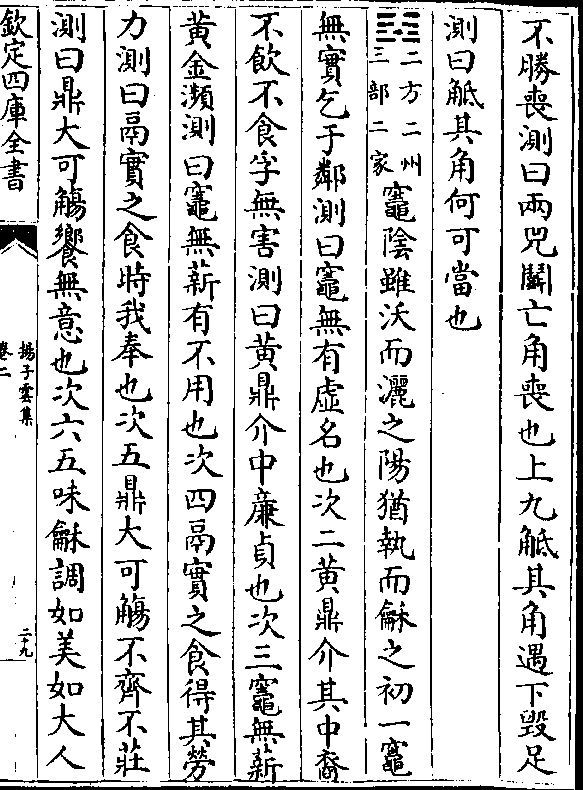 不勝喪測曰兩兕鬭亡角喪也上九觝其角遇下毀足
測曰觝其角何可當也
二方二州
三部二家
竈陰雖沃而灑之陽猶執而龢之初一竈
無實乞于鄰測曰竈無有虛名也次二黄鼎介其中裔
不飲不食孚無害測曰黄鼎介中亷貞也次三竈無薪
黄金瀕測曰竈無薪有不用也次四鬲實之食得其勞
力測曰鬲實之食時我奉也次五鼎大可觴不齊不莊
測曰鼎大可觴饗無意也次六五味龢調如美如大人
欽定四庫全書
揚子雲集
卷二
二十九